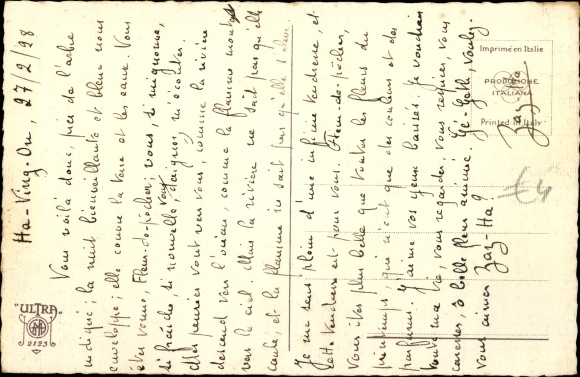 Ha-Ving-On, 27/2/28
Vous voilà donc, près de l'arbre
indiqué ; la nuit bienveillante et bleue nous
enveloppe ; elle connue la terre et les eaux. Vous
êtes venue, Fleur-de-Pêcher ; vous, si mignonne,
si fraîche, si nouvelle, vous daignez m'écouter.
Mes pensées vont vers vous, comme la rivière
descend vers l'océan, comme la flamme monte
vers le ciel. Mais la rivière ne sait pas qu'elle
coule, et la flamme ne sait pas qu'elle s'élève.
Je me sens plein d'une infinie tendresse, et
cette tendresse est pour vous, Fleur-de-Pêcher,
Vous êtes plus belle que toutes les fleurs du
printemps qui n'ont que des couleurs et des
parfums. J'aime vos yeux baissés. Je voudrais
toute ma vie, vous regarder, vous respirer, vous
caresser, ô belle fleur animée
Vous aimer
Zaz-Ha ?
Imprimé en Italie
PRODUZIONE
ITALIANA
Printed in Italy
€4
"ULTRA"
2123